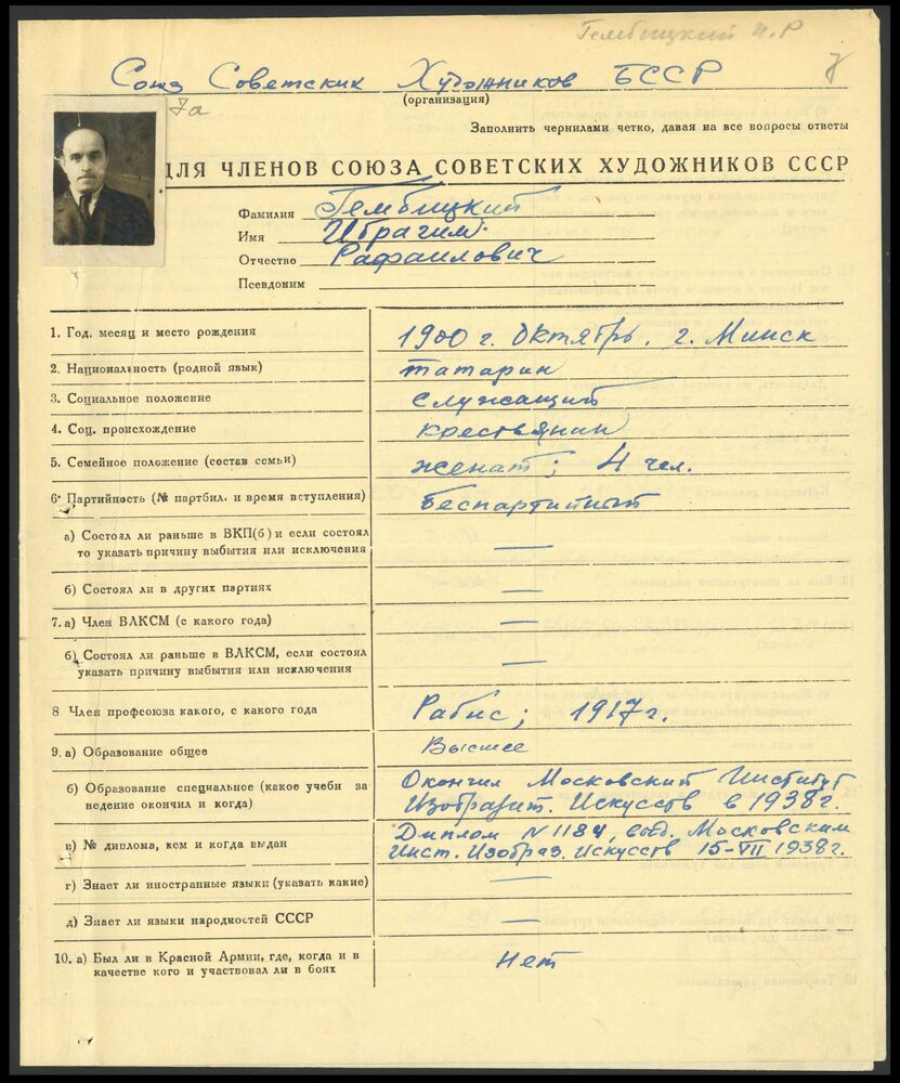 Гембицкий И.Р
7
Союз Советских Художников БССР
(организация)
7а
Заполнить чернилами четко, давая на все вопросы ответы
ДЛЯ ЧЛЕНОВ СОЮЗА СОВЕТСКИХ ХУДОЖНИКОВ СССР
Фамилия Гембицкий
Имя Ибрагим
Отчество Рафаилович
Псевдоним
1. Год, месяц и место рождения 1900 г. Октябрь. г. Минск
2. Национальность (родной язык) татарин
3. Социальное положение служащий
4. Соц. происхождение крестьянин
5. Семейное положение (состав семьи) женат; 4 чел.
6. Партийность (№ партбил. и время вступления) беспартийный
а) Состоял ли раньше в ВКП(б) и если состоял
то указать причину выбытия или исключения —
б) Состоял ли в других партиях —
7. а) Член ВЛКСМ (с какого года) —
б) Состоял ли раньше в ВЛКСМ, если состоял
указать причину выбытия или исключения —
8 Член профсоюза какого, с какого года Рабис; 1917 г.
9. а) Образование общее Высшее
б) Образование специальное (какое учебн за Окончил Московский Институт
ведение окончил и когда) Изобразит. Искусств в 1938 г.
в) № диплома, кем и когда выдан Диплом N 1184, выд. Московским
Инст. Изобраз. Искусств 15-VII 1938 г.
г) Знает ли иностранные языки (указать какие) —
д) Знает ли языки народностей СССР —
10. а) Был ли в Красной Армии, где, когда и в
качестве кого и участвовал ли в боях нет